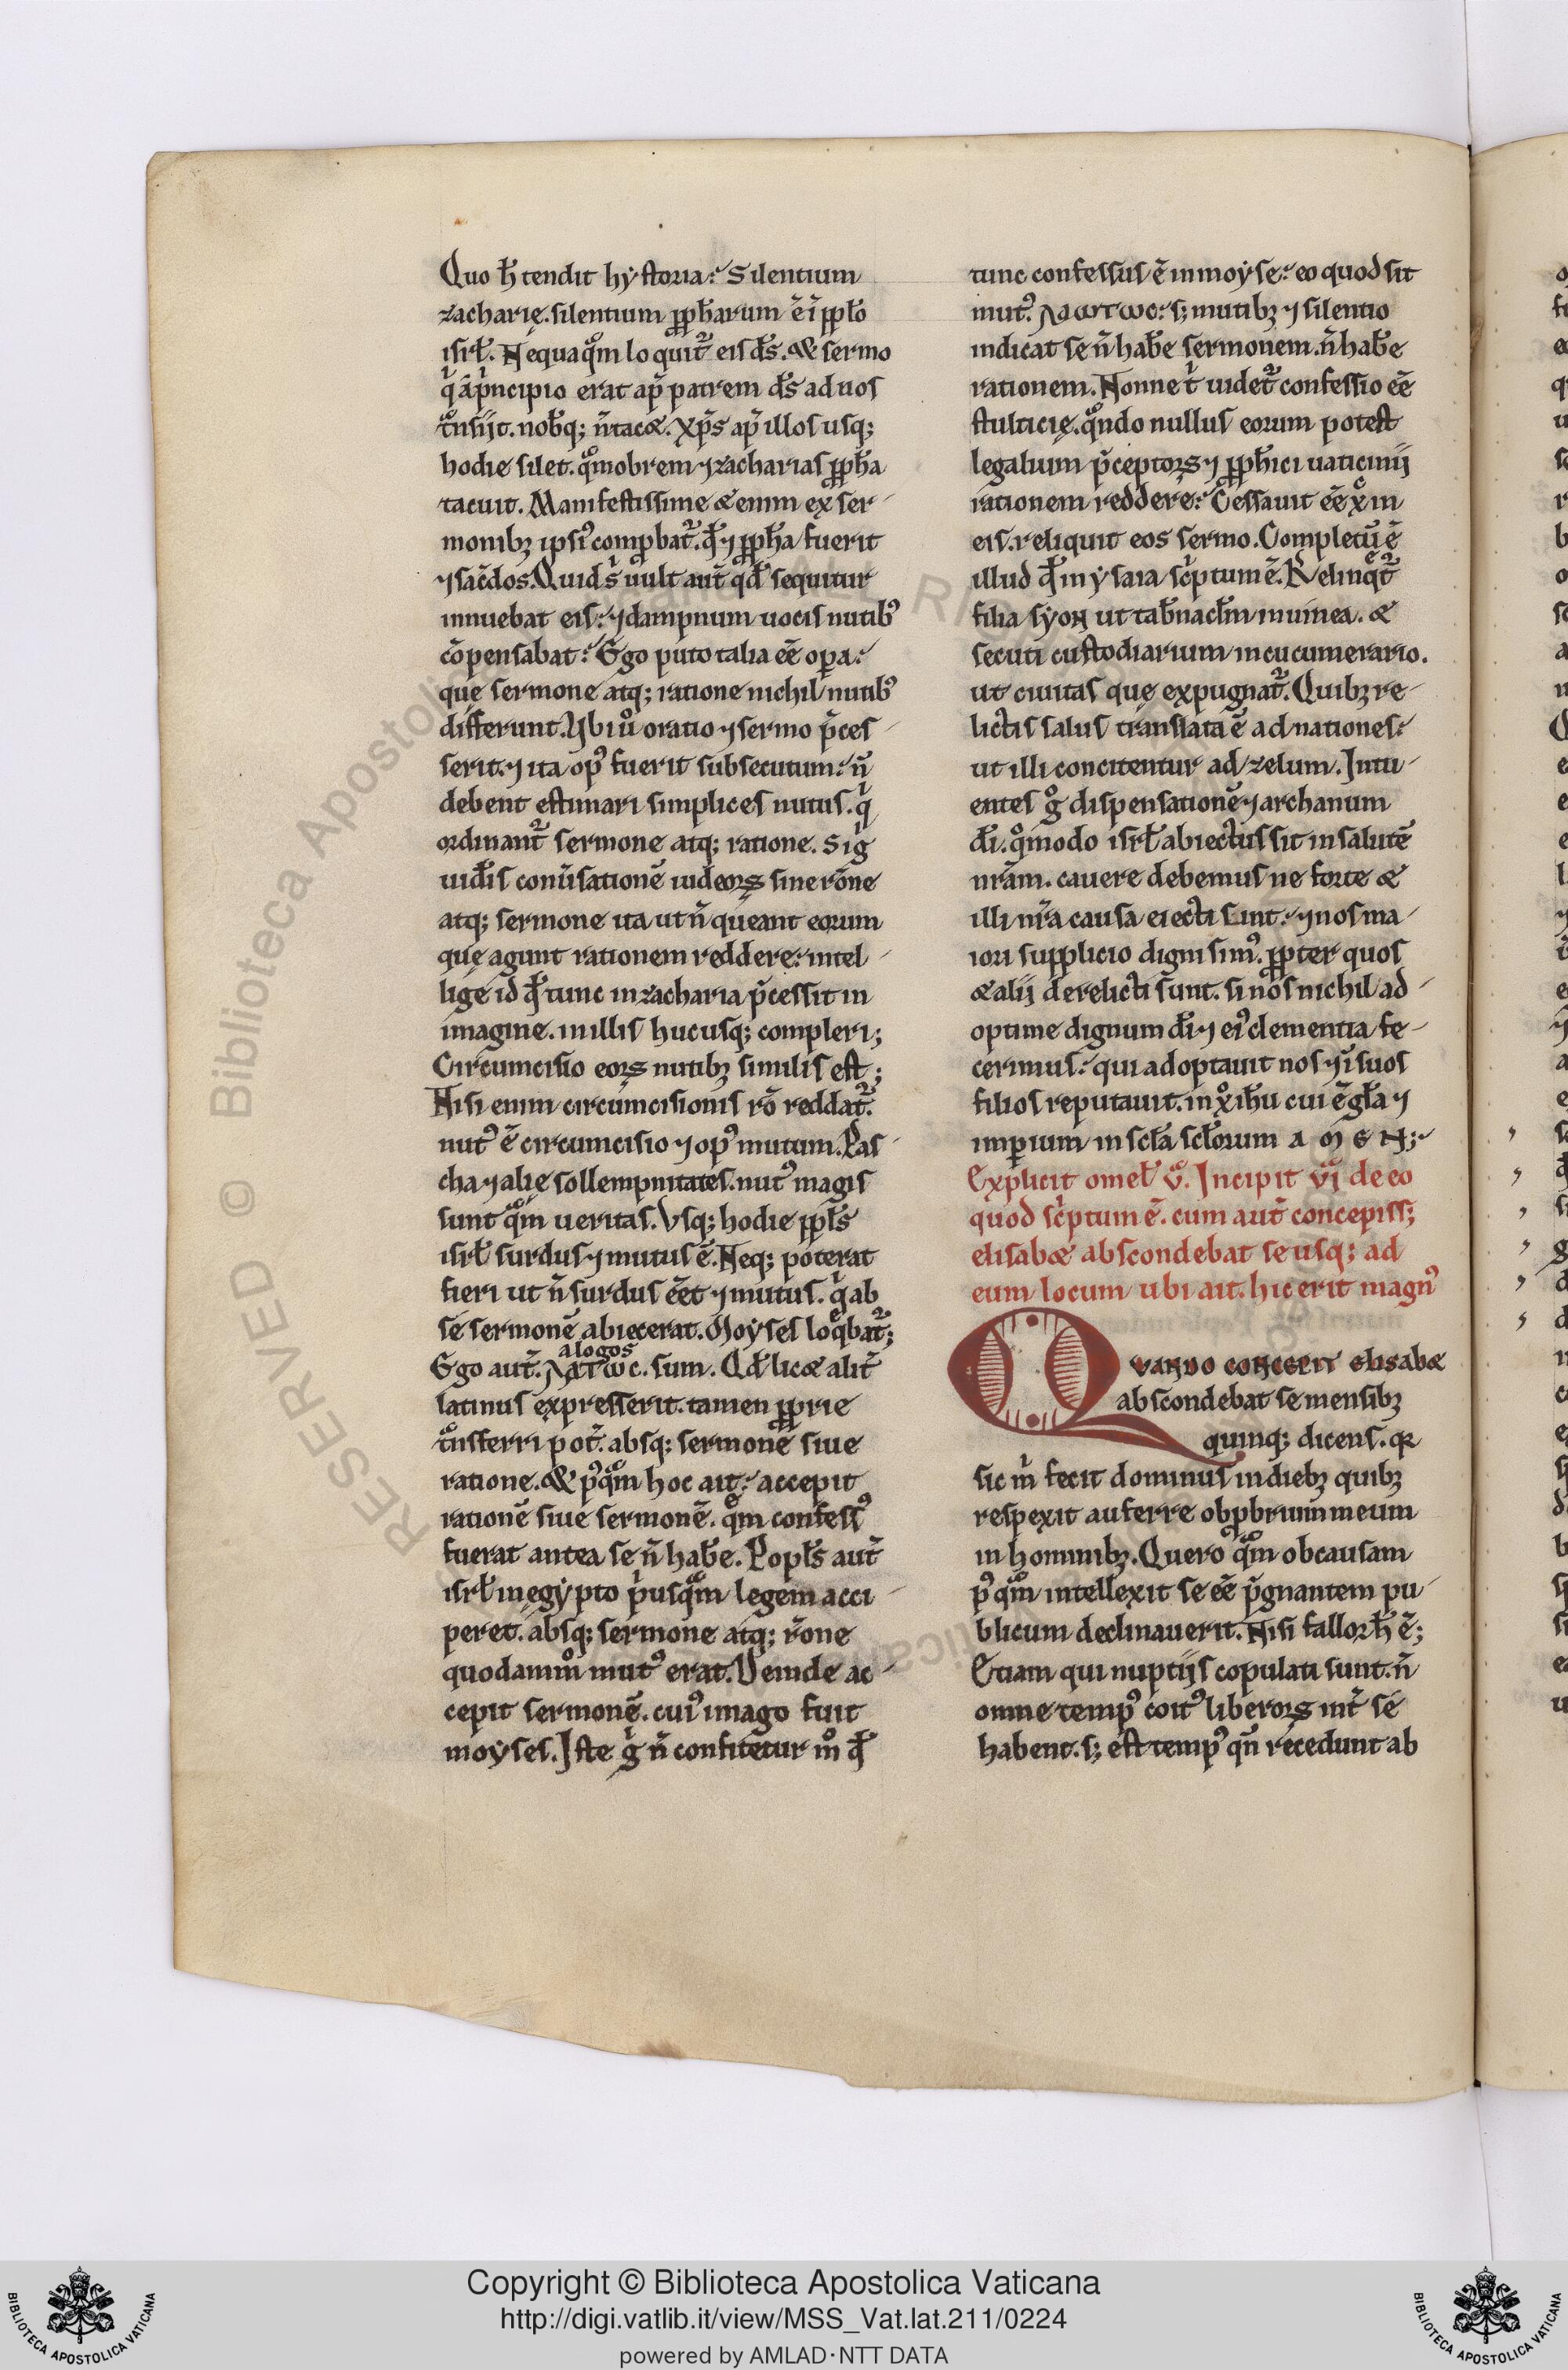 Quo h̄ tendit hẏstoria: Silentium
zacharię. silentium ꝓph̄arum ē ī ꝓpło
isrł. Nequaq̊m loquit᷑ eis ds̄. & sermo
q̍ a p̍ncipio erat ap̄ patrem ds̄ ad uos
t̊nsijt. nob̄q; n̄ tac&. xp̄s ap̄ illos usq;
hodie silet. q̊mobrem ⁊ zacharias ꝓph̄a
tacuit. Manifestissime &enim ex ser-
monibꝫ ipsiꝰ comꝓbat᷑. qđ ⁊ ꝓph̄a fuerit
⁊ sac̄dos. Quid s̄ uult aut̄ qđ sequitur
innuebat eis: ⁊ dampnum uocis nutibꝰ
cōpensabat: Ego puto talia eē oꝑa:
quę sermone atq; ratione nichil nutibꝰ
differunt. Ubi ů oratio ⁊ sermo p̄ces-
serit. ⁊ ita opꝰ fuerit subsecutum: n̄
debent estimari simplices nutus. q̍
ordinant᷑ sermone atq; ratione. Si g̍
uid̄is conūsationē iudeoꝝ sine rōne
atq; sermone ita ut n̄ queant eorum
quę agunt rationem reddere: intel-
lige id qđ tunc in zacharia p̄cessit in
imagine. in illis hucusq; compleri;
Circumcisio eoꝝ nutibꝫ similis est;
Nisi enim circumcisionis rō reddat᷑.
nutꝰ ē circumcisio ⁊ opꝰ mutum. Pas-
cha ⁊ alię sollempnitates. nutꝰ magis
sunt q̊m ueritas. Usq; hodie ꝓpłs
isrł surdus ⁊ mutus ē. Neq; poterat
fieri ut n̄ surdus ēet ⁊ mutus. q̍ ab
se sermonē abiecerat. Moẏses loqͤbat᷑;
alogos
Ego aut̄. ΛΔΓωc. sum. Qđ lic& alit̄
latinus expresserit. tamen ꝓprie
t̊nsferri pot̄. absq; sermone siue
ratione. & pꝰq̊m hoc ait: accepit
rationē siue sermonē. qͤm confessꝰ
fuerat antea se n̄ hab̄e. Popłs aut̄
isrł in egẏpto p̍usq̊m legem acci-
peret. absq; sermone atq; rōne
quodamm̊ mutꝰ erat. Deinde ac-
cepit sermonē. cuiꝰ imago fuit
moẏses. Iste g̍ n̄ confitetur m̊ qđ
tunc confessus ē in moẏse: eo quod sit
mutꝰ. ΛΔωΓωc: s; nutibꝫ ⁊ silentio
indicat se n̄ hab̄e sermonem. n̄ hab̄e
rationem. Nonne t̍ uidet᷑ confessio eē
stulticię. q̊ndo nullus eorum potest
legalium p̄ceptoꝝ ⁊ ꝓph̄ici uaticinij
rationem reddere: Cessauit eē x̊ in
eis. reliquit eos sermo. Completū ē
illud qđ in ẏsaia sc̍ptum ē. Relinqͤt᷑
filia sẏon ut tab̄nacłm in uinea. &
secuti custodiarium in cucumerario.
ut ciuitas quę expugnat᷑. Quibꝫ re-
lictis salus translata ē ad nationes:
ut illi concitentur ad zelum. Intu-
entes g̊ dispensationē ⁊ archanum
dī. q̊modo isrł abiectus sit in salutē
nr̄am. cauere debemus ne forte &
illi nr̄a causa eiecti sint: ⁊ nos ma-
iori supplicio digni simꝰ. ꝓpter quos
& alij derelicti sunt. si nos nichil ad-
optime dignum dī ⁊ eiꝰ clementia fe-
cerimus: qui adoptauit nos ⁊ ī suos
filios reputauit. in x̊ ih̄u cui ē gła ⁊
imꝑium in scła scłorum AMEN;
Explicit omeł ů. Incipit ůi de eo
quod sc̍ptum ē. cum aut̄ concepiss;
elisab& abscondebat se usq; ad
eum locum ubi ait. hic erit magnꝰ
Quando concepit elisab&
abscondebat se mensibꝫ
quinq; dicens. qꝛ
sic m̍ fecit dominus in diebꝫ quibꝫ
respexit auferre obꝓbrium meum
in hominibꝫ. Quero q̊m ob causam
pꝰ q̊m intellexit se eē p̄gnantem pu-
blicum declinauerit. Nisi fallor h̄ ē;
Etiam qui nuptijs copulati sunt. n̄
omne tempꝰ coitꝰ liberoꝝ int̄ se
habent. s; est tempꝰ qn̄ recedunt ab
Copyright © Biblioteca Apostolica Vaticana
http://digi.vatlib.it/view/MSS_Vat.lat.211/0224
powered by AMLAD·NTT DATA